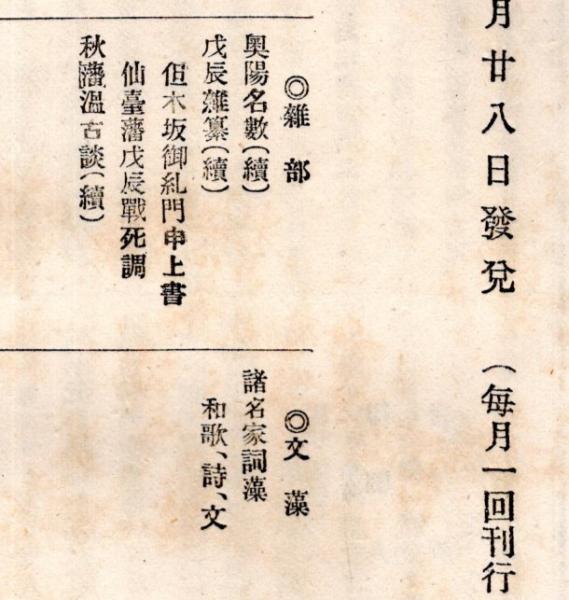 月廿八日發兌 (每月一回刊行
◎雜部
奧陽名數(續)
戊辰雜纂(續)
但木坂御糺問申上書
仙臺藩戊辰戰死調
秋藩溫古談(續)
◎文藻
諸名家詞藻
和歌、詩、文